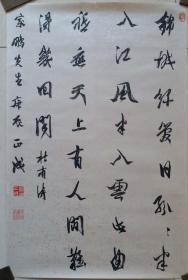 錦城絲管日紛々半
入江風半入雲此曲
祗應天上有人間難
得幾回聞 杜甫詩
家鵬先生 庚辰 正成